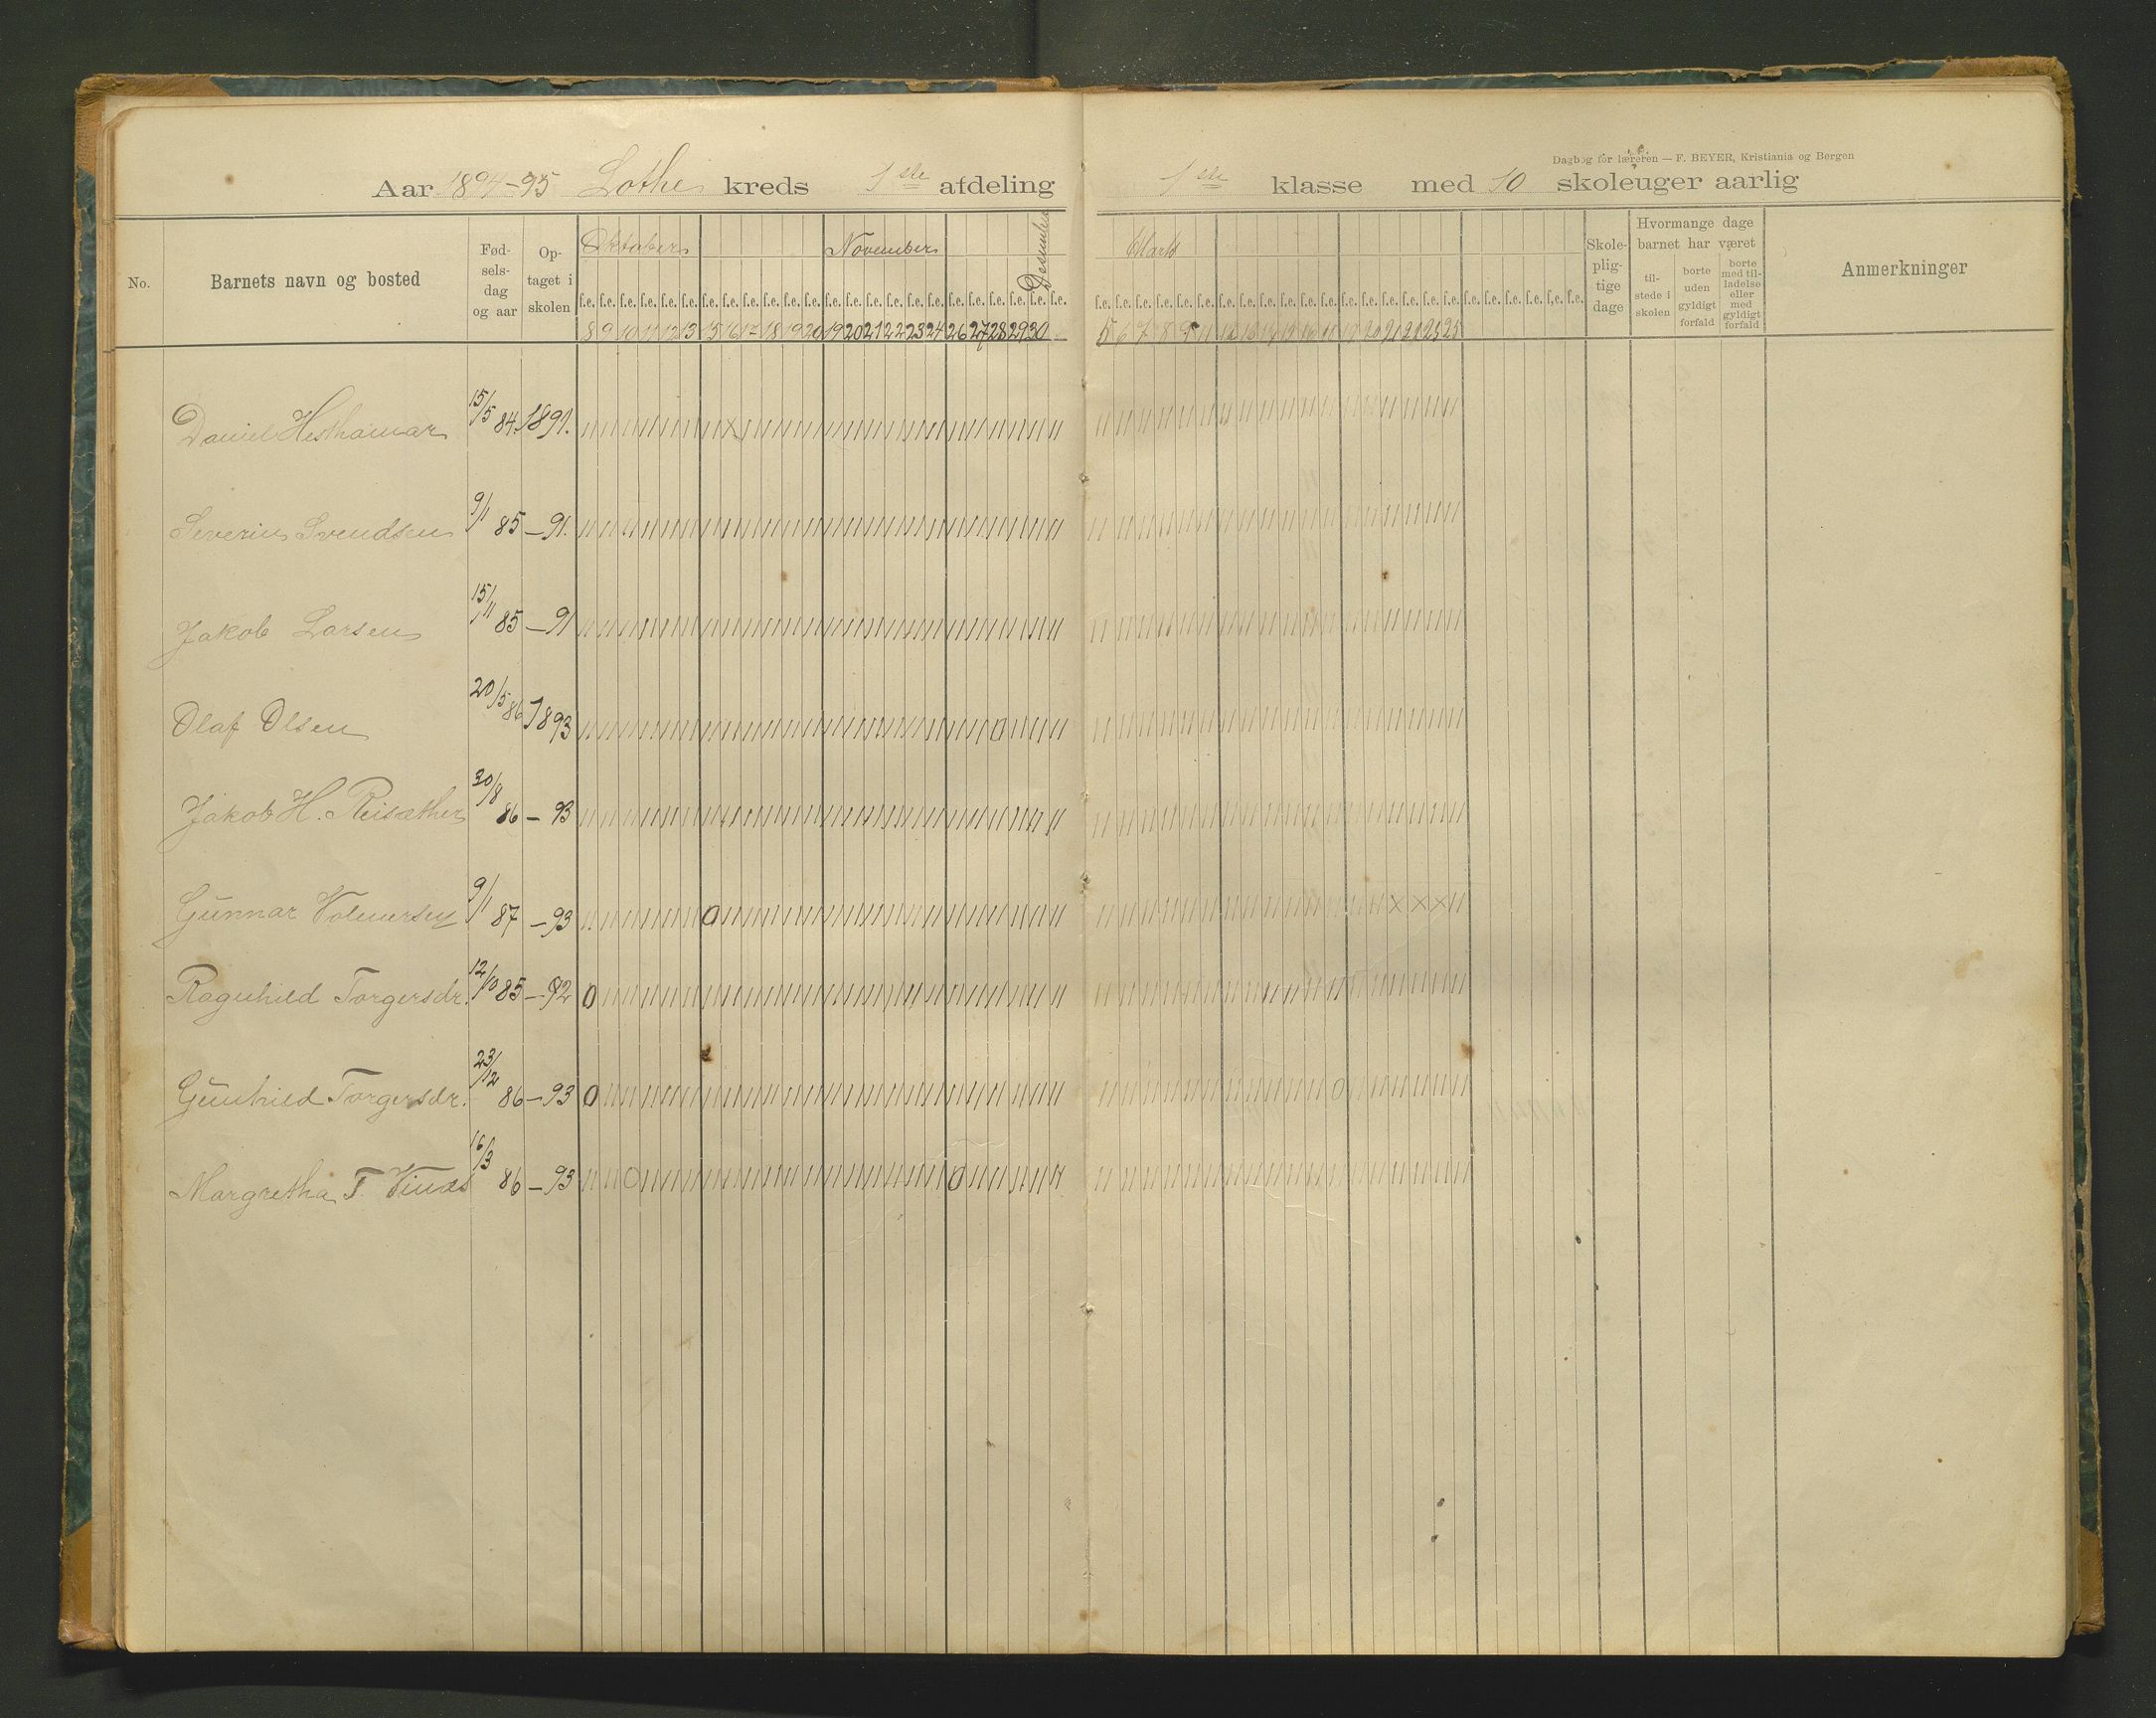 Dagbog for læreren — F. BEYER, Kristiania og Bergen
Aar 1894-95 Lothe kreds 1ste afdeling 1ste klasse med 10 skoleuger aarlig
No. Barnets navn og bosted Fødselsdag og aar Optaget i skolen Oktober November Desember Marts Skolepligtige dage Hvormange dage barnet har været tilstede i skolen borte uden gyldigt forfald borte med tilladelse eller med gyldigt forfald Anmerkninger
f.e. f.e. f.e. f.e. f.e. f.e. f.e. f.e. f.e. f.e. f.e. f.e. f.e. f.e. f.e. f.e. f.e. f.e. f.e. f.e. f.e. f.e. f.e. f.e. f.e. f.e. f.e. f.e. f.e. f.e. f.e. f.e. f.e. f.e. f.e. f.e. f.e. f.e. f.e. f.e. f.e. f.e. f.e. f.e. f.e. f.e. f.e. f.e.
8 9 10 11 12 13 15 16 17 18 19 20 19 20 21 22 23 24 26 27 28 29 30 5 6 7 8 9 11
Daniel Hesthamar 15/5 84. 1891.
Severin Svendsen 9/1 85 — 91.
Jakob Larsen 15/11 85 — 91
Olaf Olsen 20/5 86 1893
Jakob H. Reisæther 30/8 86 — 93
Gunnar Volmersen 9/1 87 — 93
Ragnhild Torgersdr. 12/10 85 — 92
Gunhild Torgersdr. 23/12 86 — 93
Margretha T. Vinæs 16/3 86 — 93